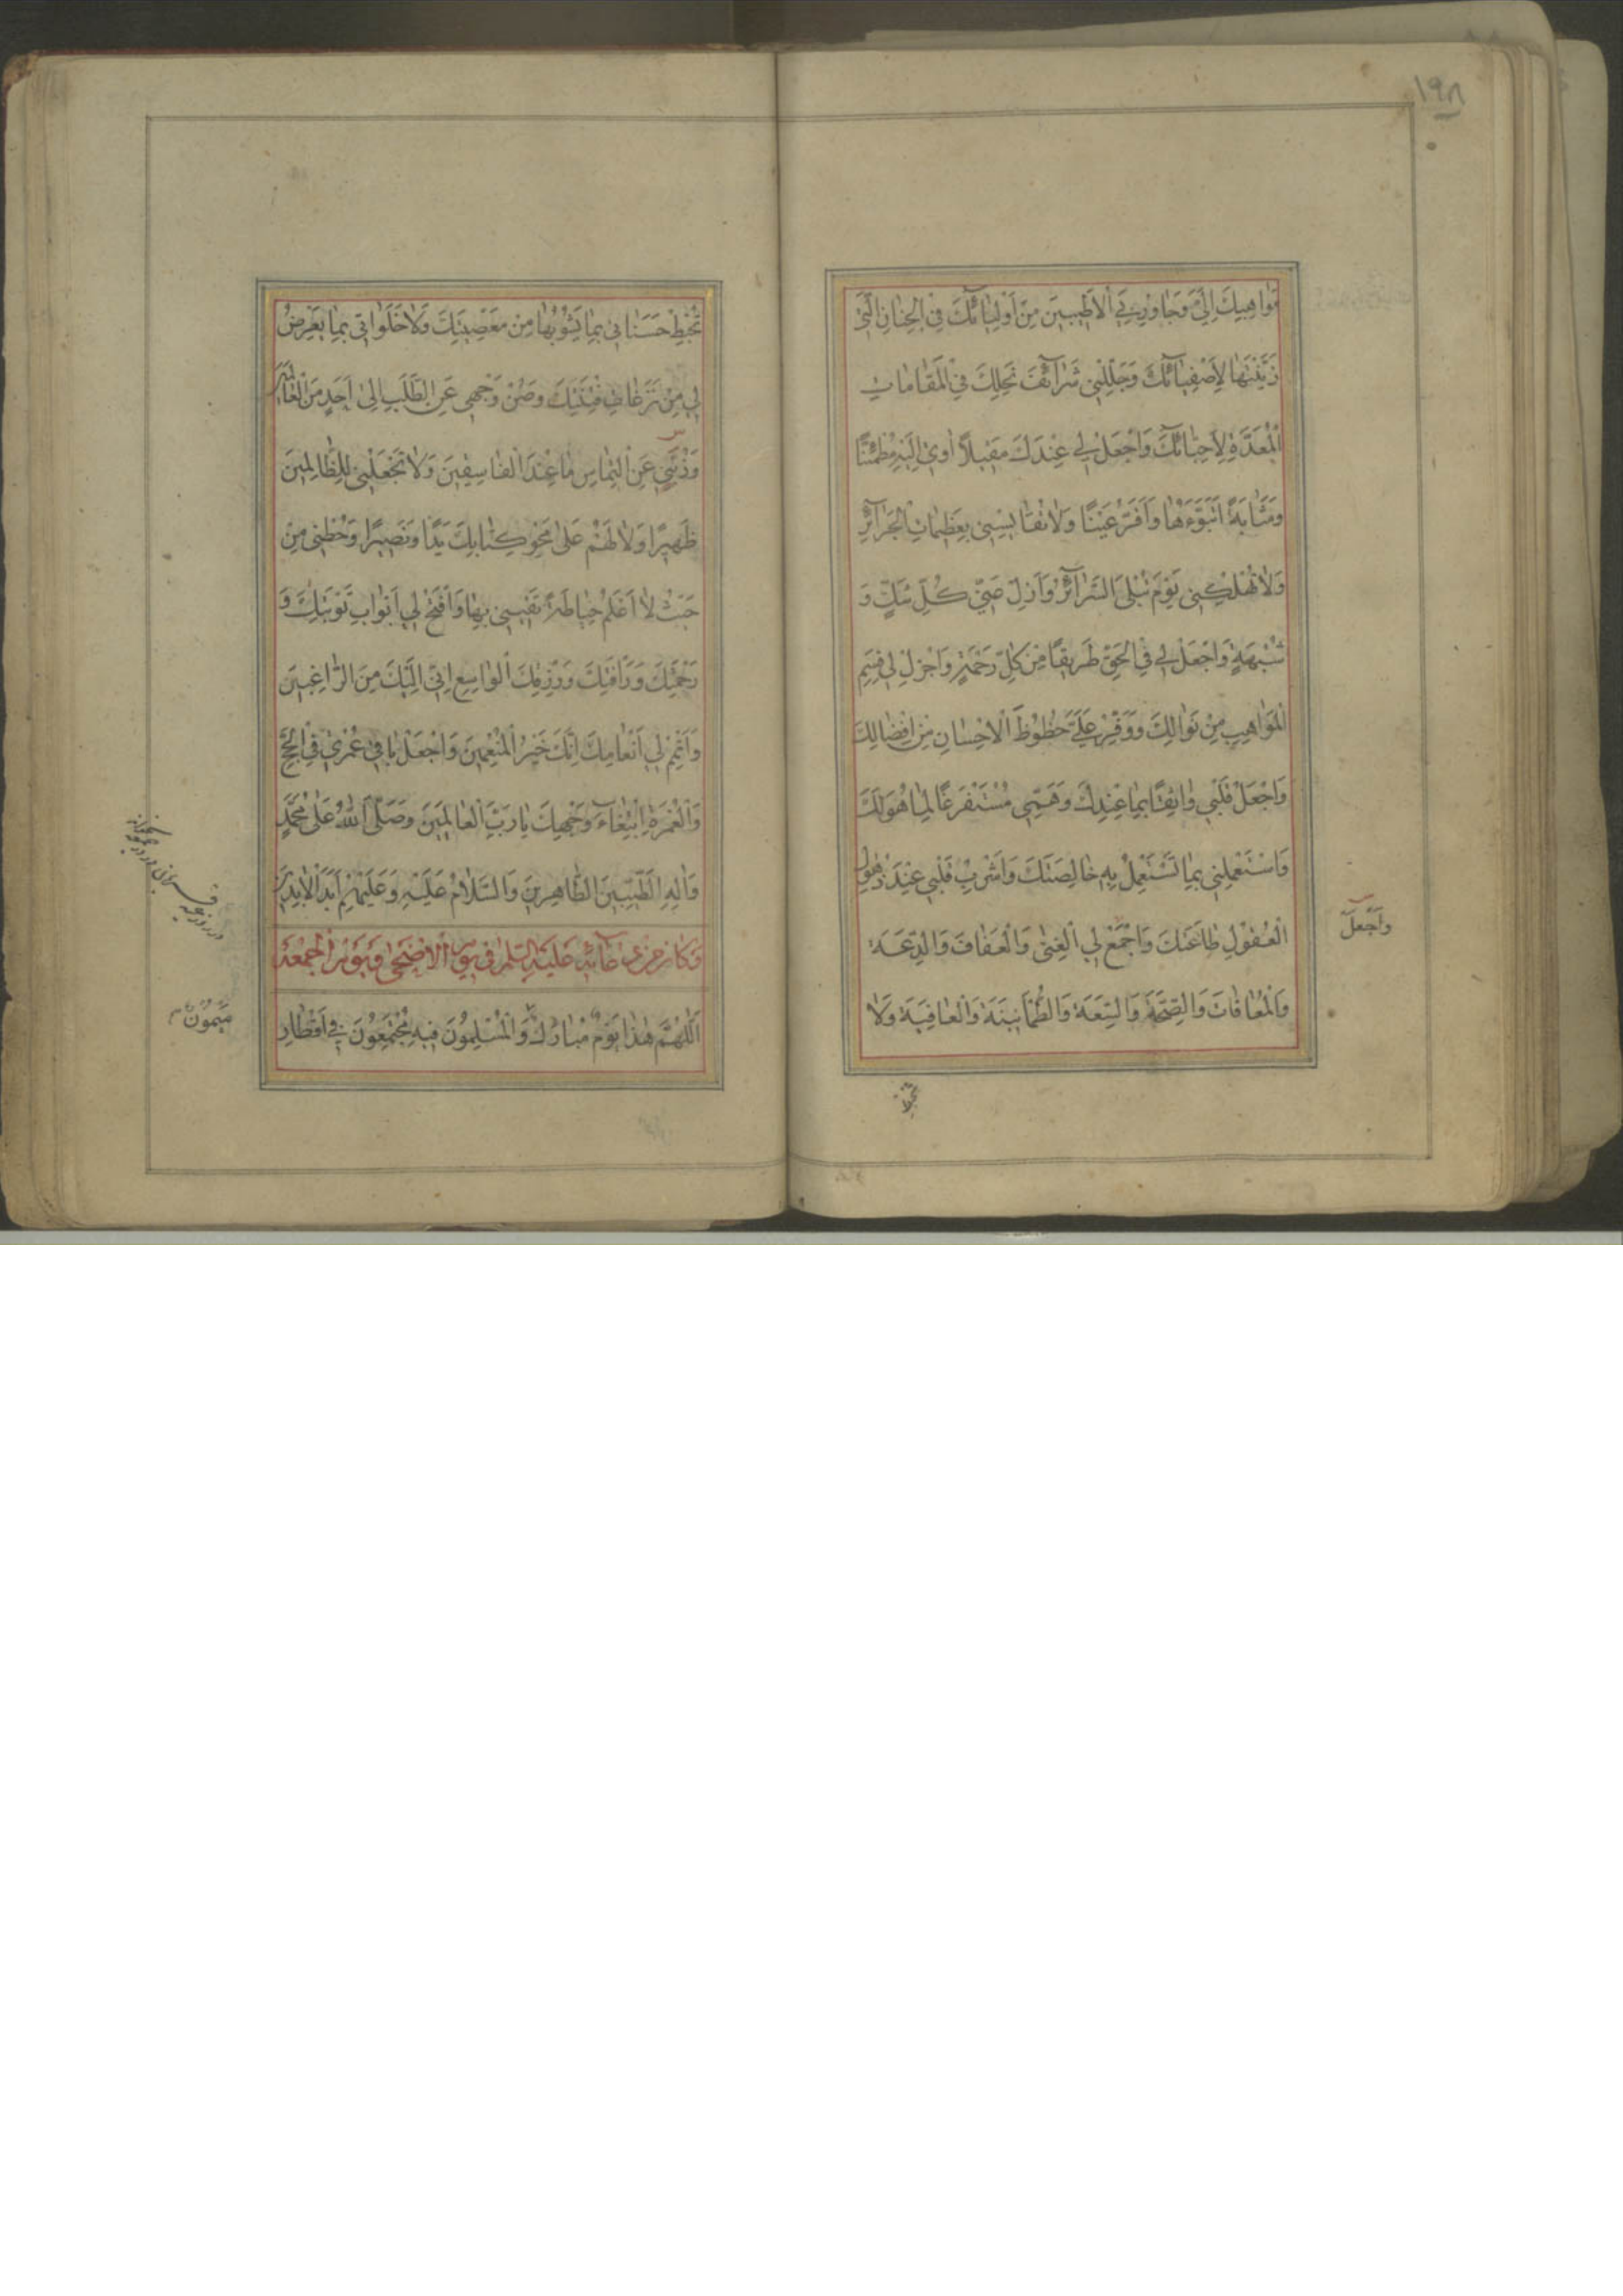 ١٩٨
مَوَاهِبِكَ اِلَيَّ وَجَاوِرْ بِيَ الْاَطْيَبِينَ مِنْ اَوْلِيَآئِكَ فِي الْجِنَانِ الَّتِي
زَيَّنْتَهَا لِاَصْفِيَآئِكَ وَجَلِّلْنِي شَرَآئِفَ نِحَلِكَ فِي الْمَقَامَاتِ
الْمُعَدَّةِ لِاَحِبَّآئِكَ وَاجْعَلْ لِي عِنْدَكَ مَقِيلًا اٰوِي اِلَيْهِ مُطْمَئِنًّا
وَمَثَابَةً اَتَبَوَّءُهَا وَاَقَرُّ عَيْنًا وَلَا تُقَايِسْنِي بِعَظِيمَاتِ الْجَرَآئِرِ
وَلَا تُهْلِكْنِي يَوْمَ تُبْلَى السَّرَآئِرُ وَاَزِلْ عَنِّي كُلَّ شَكٍّ وَ
شُبْهَةٍ وَاجْعَلْ لِي فِي الْحَقِّ طَرِيقًا مِنْ كُلِّ رَحْمَةٍ وَاَجْزِلْ لِي قِسَمِ
الْمَوَاهِبِ مِنْ نَوَالِكَ وَوَفِّرْ عَلَيَّ حُظُوظَ الْاِحْسَانِ مِنْ اِفْضَالِكَ
وَاجْعَلْ قَلْبِي وَاثِقًا بِمَا عِنْدَكَ وَهَمِّي مُسْتَفْرَغًا لِمَا هُوَ لَكَ
وَاسْتَعْمِلْنِي بِمَا تَسْتَعْمِلُ بِهِ خَالِصَتَكَ وَاَشْرِبْ قَلْبِي عِنْدَ ذُهُولِ
الْعُقُولِ طَاعَتَكَ وَاجْمَعْ لِي الْغِنٰى وَالْعَفَافَ وَالدَّعَةَ
وَالْمُعَافَاةَ وَالصِّحَّةَ وَالسَّعَةَ وَالطُّمَأْنِينَةَ وَالْعَافِيَةَ وَلَا
وَاجْعَلْ
تُحْبِطْ
تُحْبِطْ حَسَنَاتِي بِمَا يَشُوبُهَا مِنْ مَعْصِيَتِكَ وَلَا خَلَوَاتِي بِمَا يَعْرِضُ
لِي مِنْ نَزَغَاتِ فِتْنَتِكَ وَصُنْ وَجْهِي عَنِ الطَّلَبِ اِلٰى اَحَدٍ مِنَ الْعَالَمِينَ
وَذُبَّنِي عَنِ الْتِمَاسِ مَا عِنْدَ الْفَاسِقِينَ وَلَا تَجْعَلْنِي لِلظَّالِمِينَ
ظَهِيرًا وَلَا لَهُمْ عَلٰى مَحْوِ كِتَابِكَ يَدًا وَنَصِيرًا وَحُطْنِي مِنْ
حَيْثُ لَا اَعْلَمُ حِيَاطَةً تَقِينِي بِهَا وَافْتَحْ لِي اَبْوَابَ تَوْبَتِكَ وَ
رَحْمَتِكَ وَرَأْفَتِكَ وَرِزْقِكَ الْوَاسِعِ اِنِّي اِلَيْكَ مِنَ الرَّاغِبِينَ
وَاَتْمِمْ لِي اَنْعَامَكَ اِنَّكَ خَيْرُ الْمُنْعِمِينَ وَاجْعَلْ بَاقِيَ عُمْرِي فِي الْحَجِّ
وَالْعُمْرَةِ اِبْتِغَآءَ وَجْهِكَ يَا رَبَّ الْعَالَمِينَ وَصَلَّى اللّٰهُ عَلٰى مُحَمَّدٍ
وَاٰلِهِ الطَّيِّبِينَ الطَّاهِرِينَ وَالسَّلَامُ عَلَيْهِ وَعَلَيْهِمْ اَبَدَ الْاٰبِدِينَ
وَكَانَ مِنْ دُعَآئِهِ عَلَيْهِ السَّلٰمُ فِي يَوْمِ الْاَضْحٰى وَيَوْمِ الْجُمْعَةِ
اَللّٰهُمَّ هٰذَا يَوْمٌ مُبَارَكٌ وَالْمُسْلِمُونَ فِيهِ مُجْتَمِعُونَ فِي اَقْطَارِ
مَيْمُونٌ